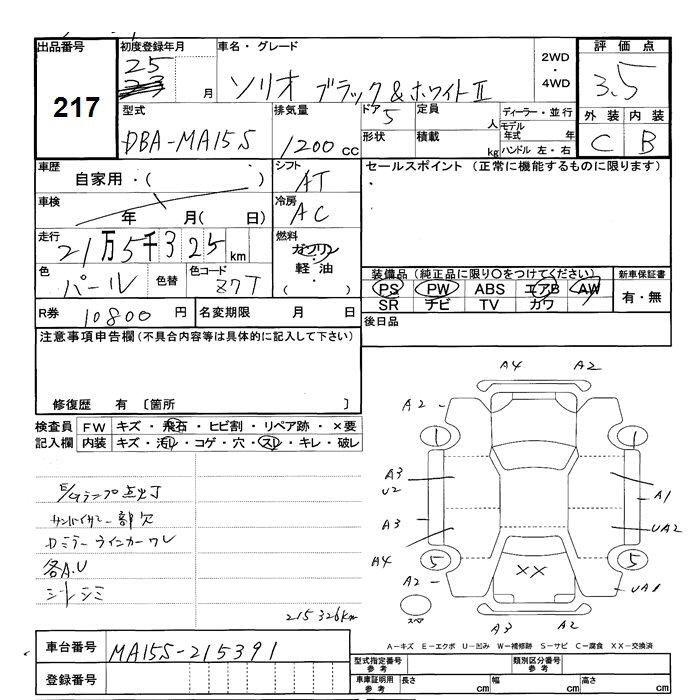 出品番号
217
初度登録年月
25
23 月
車名・グレード
ソリオ ブラック&ホワイトⅡ
2WD
・
4WD
評価点
3.5
型式
DBA-MA15S
排気量
1200 cc
ドア 5
定員 人
形状
積載 kg
ディーラー・並行
モデル年式 年
ハンドル 左・右
外装 内装
C B
車歴
自家用・( )
シフト
AT
セールスポイント (正常に機能するものに限ります)
車検
年 月( 日)
冷房
AC
走行
21万5千325km
燃料
ガソリン
・
軽油
( )
色
パール
色替
色コード
Z7T
装備品(純正品に限り○をつけてください)
PS PW ABS エアB AW
SR ナビ TV カワ
新車保証書
有・無
R券 10800 円
名変期限 月 日
後日品
注意事項申告欄(不具合内容等は具体的に記入して下さい)
修復歴 有 〔箇所 〕
検査員記入欄
FW キズ・飛石・ヒビ割・リペア跡・×要
内装 キズ・汚レ・コゲ・穴・スレ・キレ・破レ
E/Gランプ点灯
サンバイザー一部欠
Dミラーウインカーワレ
各A.U
シートシミ
215326km
A4 A2
A2
1 1
A3
U2
A1
A3
UA2
A4
5 5
A2
XX
UA1
スペア
A3 A2
A-キズ E-エクボ U-凹み W-補修跡 S-サビ C-腐食 XX-交換済
車台番号 MA15S-215391
登録番号
型式指定番号参考
類別区分番号参考
車庫証明用参考
長さ cm
幅 cm
高さ cm